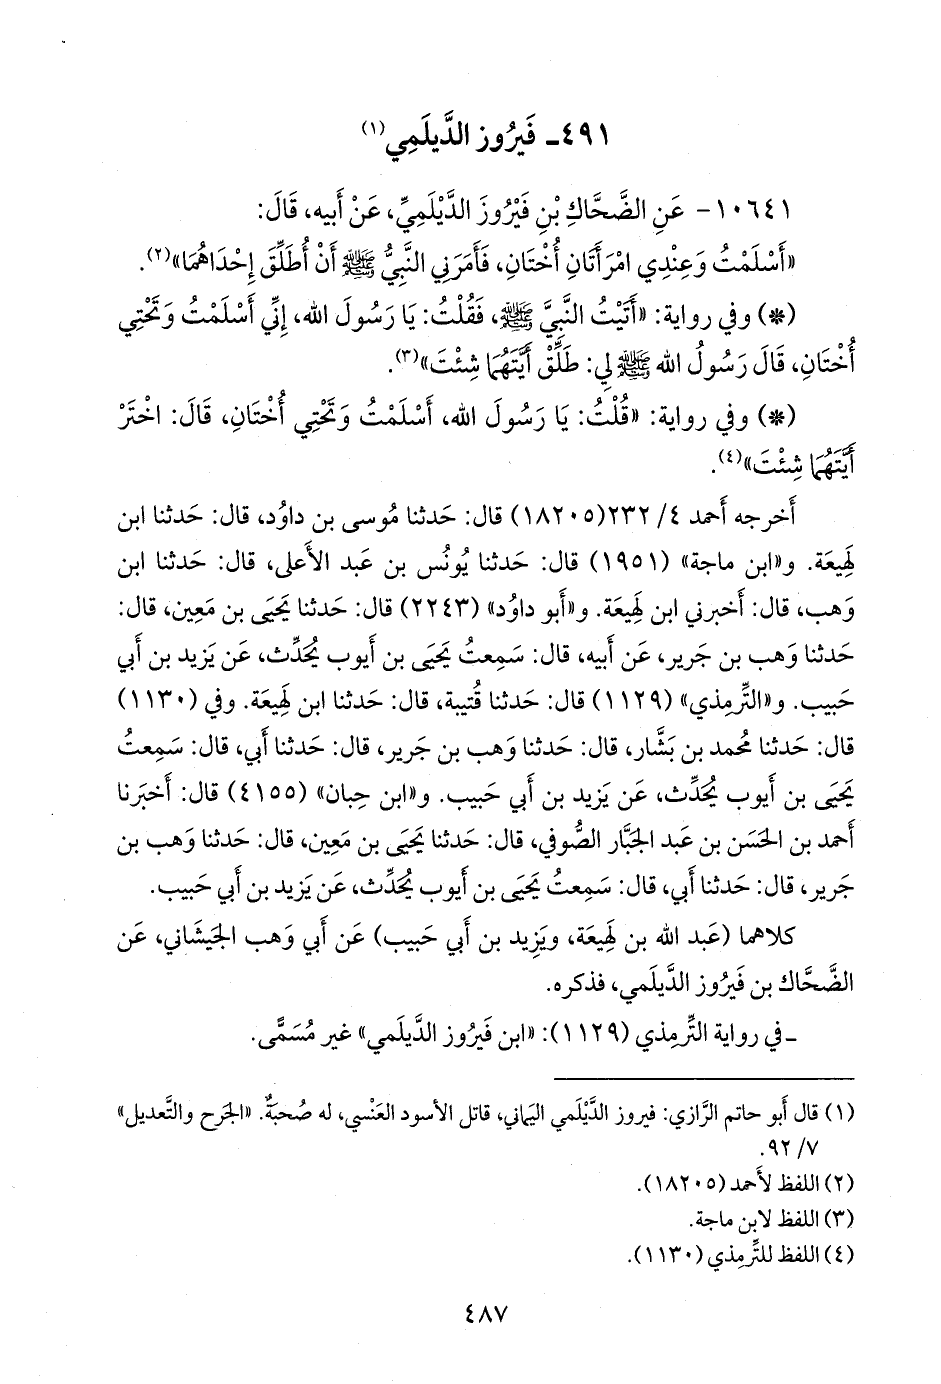 ٤٩١ـ فَيرُوز الدَّيلَمِي(١)
١٠٦٤١- عَنِ الضَّحَّاكِ بْنِ فَيْرُوزَ الدَّيْلَمِيِّ، عَنْ أَبيه، قَالَ:
«أَسْلَمْتُ وَعِنْدِي امْرَأَتَانِ أُخْتَانِ، فَأَمَرَنِي النَّبِيُّ ﷺ أَنْ أُطَلِّقَ إِحْدَاهُمَا»(٢).
(*) وفي رواية: «أَتَيْتُ النَّبِيَّ ﷺ، فَقُلْتُ: يَا رَسُولَ الله، إِنِّي أَسْلَمْتُ وَتَحْتِي
أُخْتَانِ، قَالَ رَسُولُ الله ﷺ لِي: طَلِّقْ أَيَّتَهُمَا شِئْتَ»(٣).
(*) وفي رواية: «قُلْتُ: يَا رَسُولَ الله، أَسْلَمْتُ وَتَحْتِي أُخْتَانِ، قَالَ: اخْتَرْ
أَيَّتَهُمَا شِئْتَ»(٤).
أَخرجه أَحمد ٤/ ٢٣٢(١٨٢٠٥) قال: حَدثنا مُوسى بن داوُد، قال: حَدثنا ابن
لَهِيعَة. و«ابن ماجة» (١٩٥١) قال: حَدثنا يُونُس بن عَبد الأَعلى، قال: حَدثنا ابن
وَهب، قال: أَخبرني ابن لَهِيعَة. و«أَبو داوُد» (٢٢٤٣) قال: حَدثنا يَحيَى بن مَعِين، قال:
حَدثنا وَهب بن جَرير، عَن أَبيه، قال: سَمِعتُ يَحيَى بن أَيوب يُحَدِّث، عَن يَزيد بن أَبي
حَبيب. و«التِّرمِذي» (١١٢٩) قال: حَدثنا قُتيبة، قال: حَدثنا ابن لَهِيعَة. وفي (١١٣٠)
قال: حَدثنا مُحمد بن بَشَّار، قال: حَدثنا وَهب بن جَرير، قال: حَدثنا أَبي، قال: سَمِعتُ
يَحيَى بن أَيوب يُحَدِّث، عَن يَزيد بن أَبي حَبيب. و«ابن حِبان» (٤١٥٥) قال: أَخبَرنا
أَحمد بن الحَسَن بن عَبد الجَبَّار الصُّوفي، قال: حَدثنا يَحيَى بن مَعِين، قال: حَدثنا وَهب بن
جَرير، قال: حَدثنا أَبي، قال: سَمِعتُ يَحيَى بن أَيوب يُحَدِّث، عَن يَزيد بن أَبي حَبيب.
كلاهما (عَبد الله بن لَهِيعَة، ويَزِيد بن أَبي حَبيب) عَن أَبي وَهب الجَيشَاني، عَن
الضَّحَّاك بن فَيرُوز الدَّيلَمي، فذكره.
ـ في رواية التِّرمِذي (١١٢٩): «ابن فَيرُوز الدَّيلَمي» غير مُسَمًّى.
(١) قال أَبو حاتم الرَّازي: فيروز الدَّيْلَمي اليماني، قاتل الأَسود العَنْسي، له صُحبَةٌ. «الجَرح والتَّعديل»
٧/ ٩٢.
(٢) اللفظ لأَحمد (١٨٢٠٥).
(٣) اللفظ لابن ماجة.
(٤) اللفظ للتِّرمِذي (١١٣٠).
٤٨٧